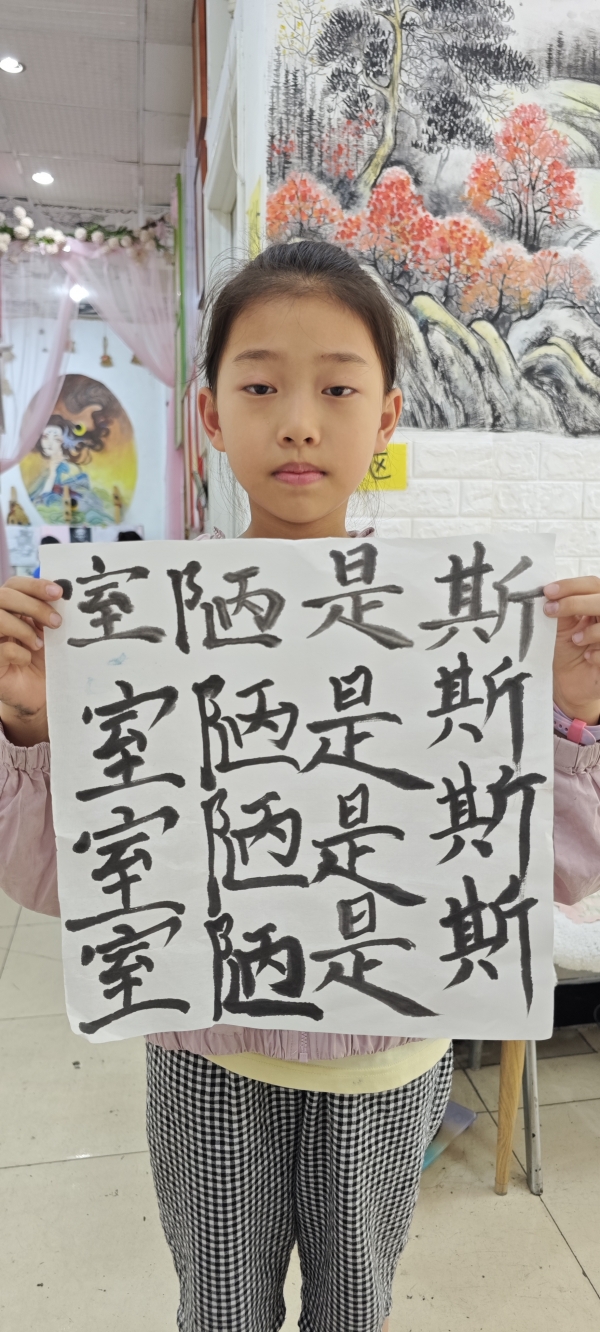 斯斯斯斯
是是是是
陋陋陋陋
室室室室
区